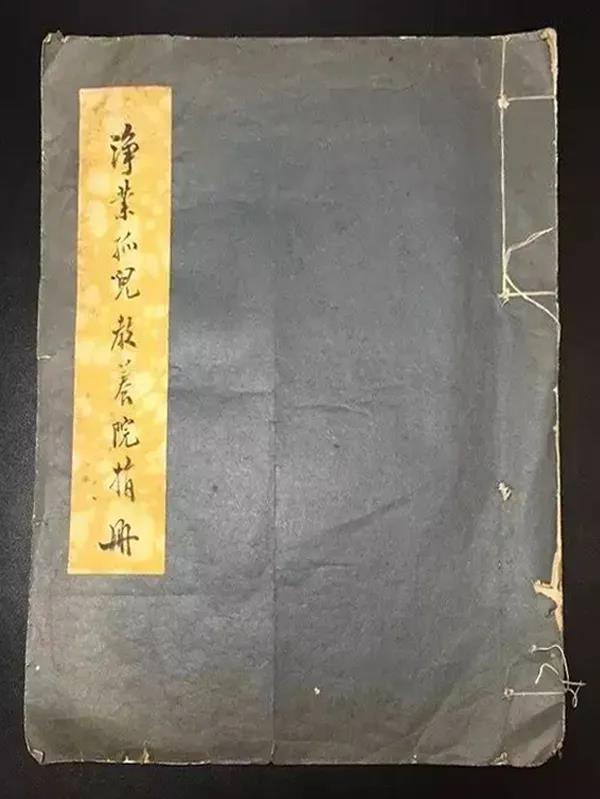 淨業孤兒教養院捐冊